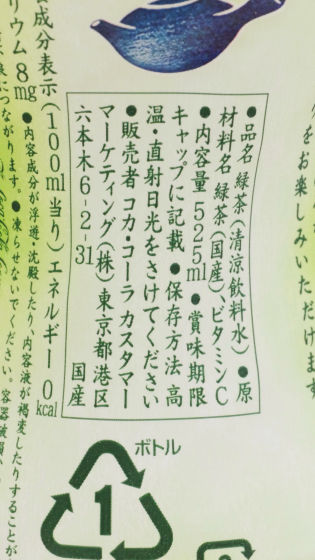 をお楽しみいただけます
●品名 緑茶(清涼飲料水) ●原
材料名 緑茶(国産)、ビタミンC
●内容量 525ml ●賞味期限
キャップに記載 ●保存方法 高
温・直射日光をさけてください
●販売者 コカ・コーラ カスタマー
マーケティング(株) 東京都港区
六本木6-2-31
国産
成分表示(100ml当り) エネルギー 0kcal
リウム 8mg ●内容成分が浮遊・沈殿したり、内容液が褐変したりすることが
ながります。●凍らせないでください。容器破損
ボトル
1